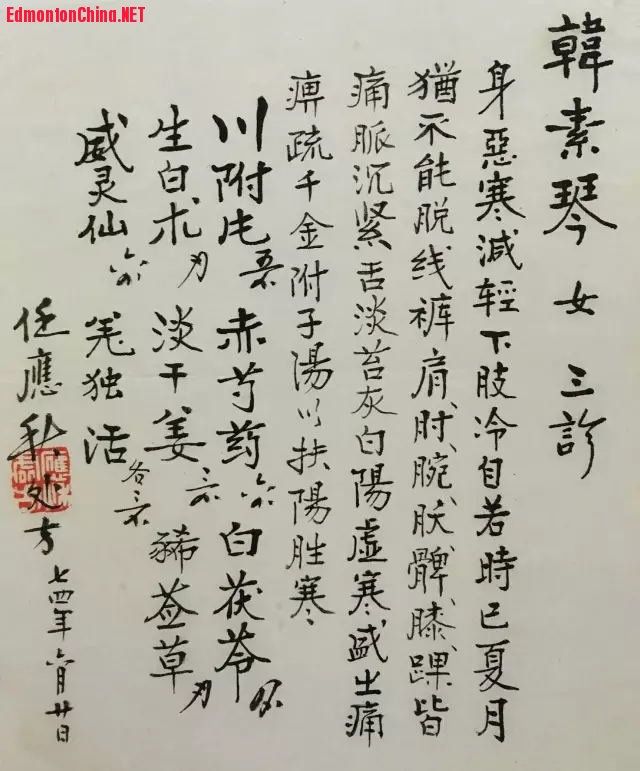 EdmontonChina.NET
韓素琴 女 三診
身惡寒減輕下肢冷自若時已夏月
猶不能脱线裤肩、肘、腕、肷、髀、膝、踝皆
痛脈沉紧舌淡苔灰白陽虚寒盛之痛
痹疏千金附子湯以扶陽胜寒
川附片 赤芍药 白茯苓
生白朮 淡干姜 豨莶草
威灵仙 羌独活 各
任應秋处方 七四年六月廿日